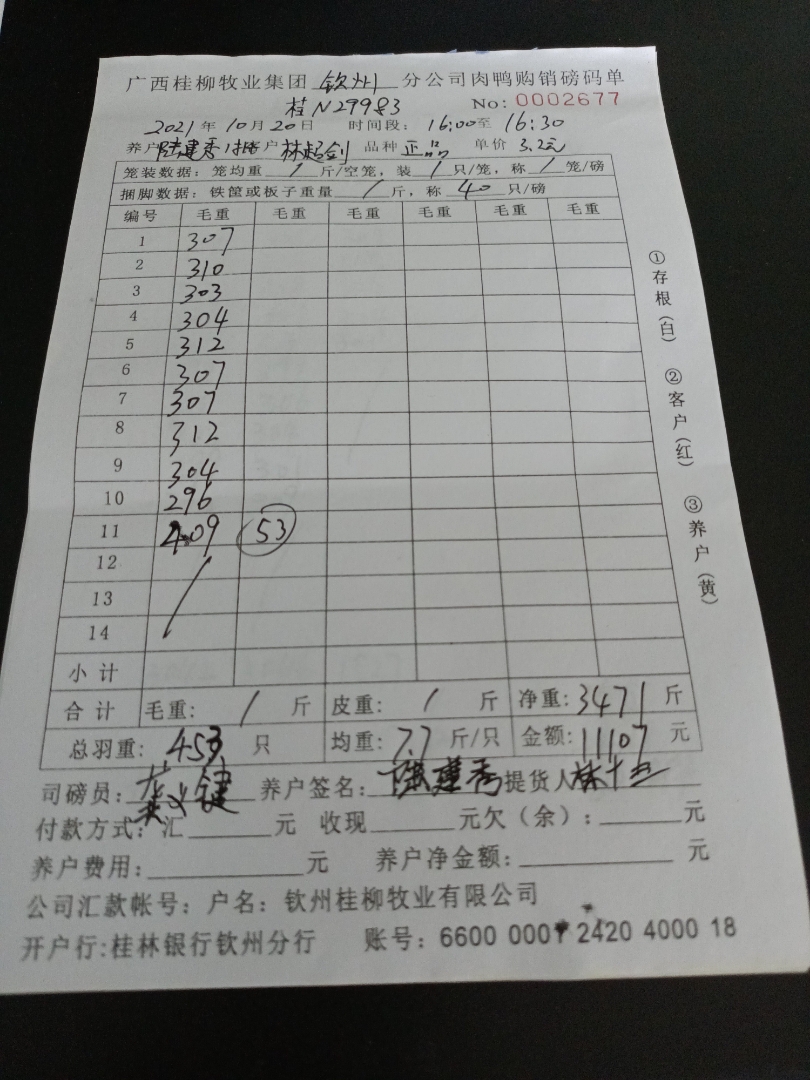 广西桂柳牧业集团 钦州 分公司肉鸭购销磅码单
桂N29983 No: 0002677
2021年10月20日 时间段: 16:00至16:30
养户 陆建秀 户 林超剑 品种 正品 单价 3.2元
笼装数据: 笼均重 / 斤/空笼, 装 / 只/笼, 称 / 笼/磅
捆脚数据: 铁筐或板子重量 / 斤, 称 40 只/磅
编号 毛重 毛重 毛重 毛重 毛重 毛重
1 307
2 310
3 303
4 304
5 312
6 307
7 307
8 312
9 304
10 296
11 409 53
12
13
14
小计
合计 毛重: / 斤 皮重: / 斤 净重: 3471 斤
总羽重: 453 只 均重: 7.7 斤/只 金额: 11107 元
司磅员: 养户签名: 陆建秀 提货人 林十五
付款方式: 汇 元 收现 元欠(余): 元
养户费用: 元 养户净金额: 元
公司汇款帐号: 户名: 钦州桂柳牧业有限公司
开户行:桂林银行钦州分行 账号: 6600 000 2420 4000 18
①存根(白)
②客户(红)
③养户(黄)